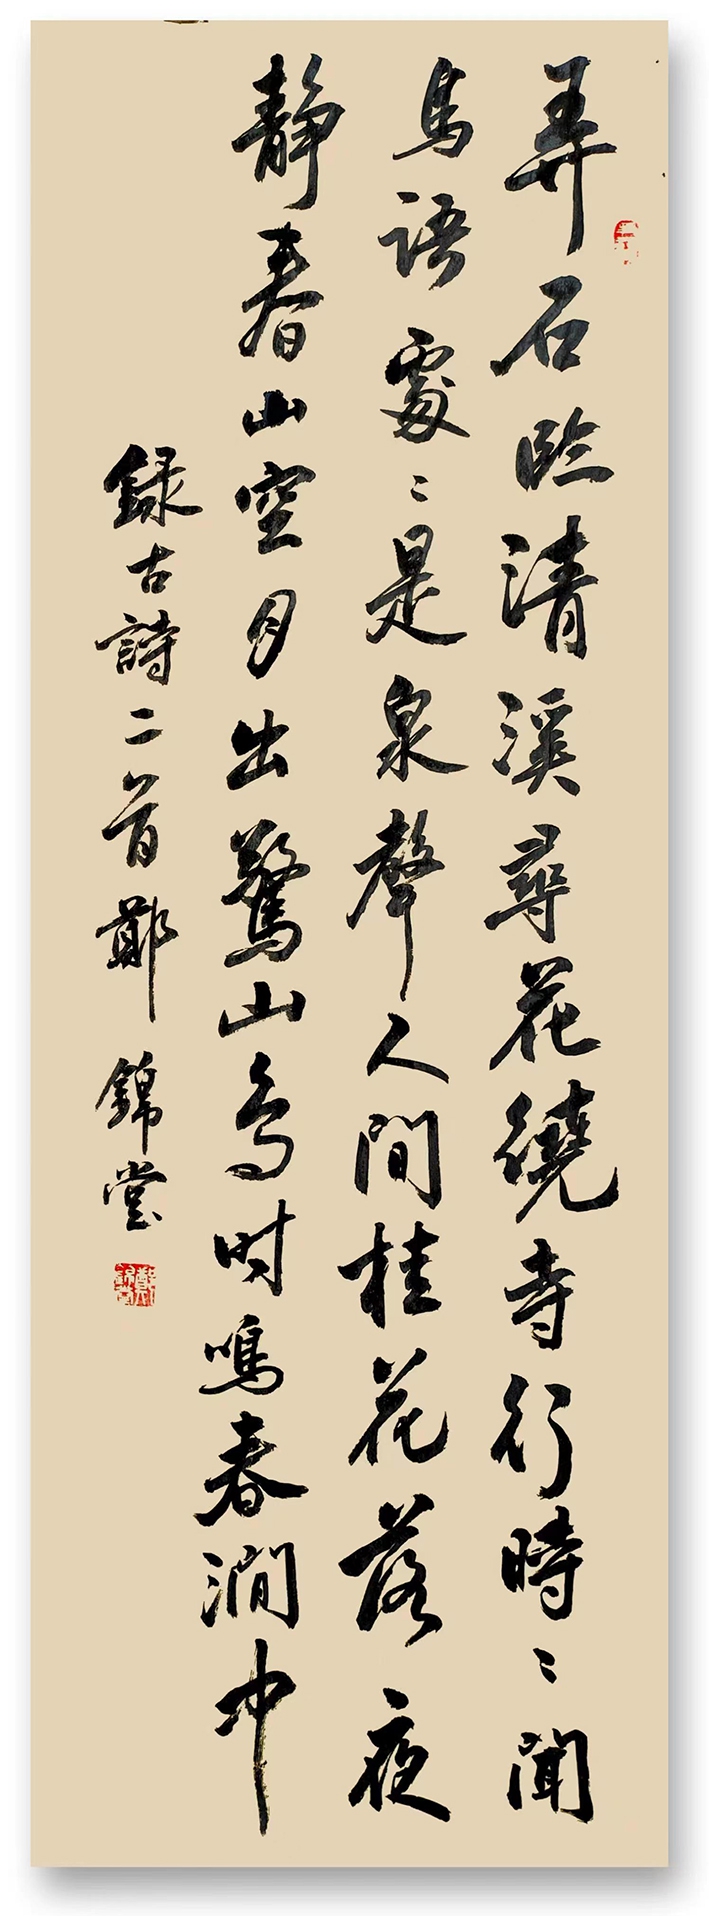 弄石臨清溪尋花繞寺行時〻聞
鳥語處〻是泉聲人間桂花落夜
静春山空月出驚山鳥时鳴春澗中
録古詩二首鄭錦堂